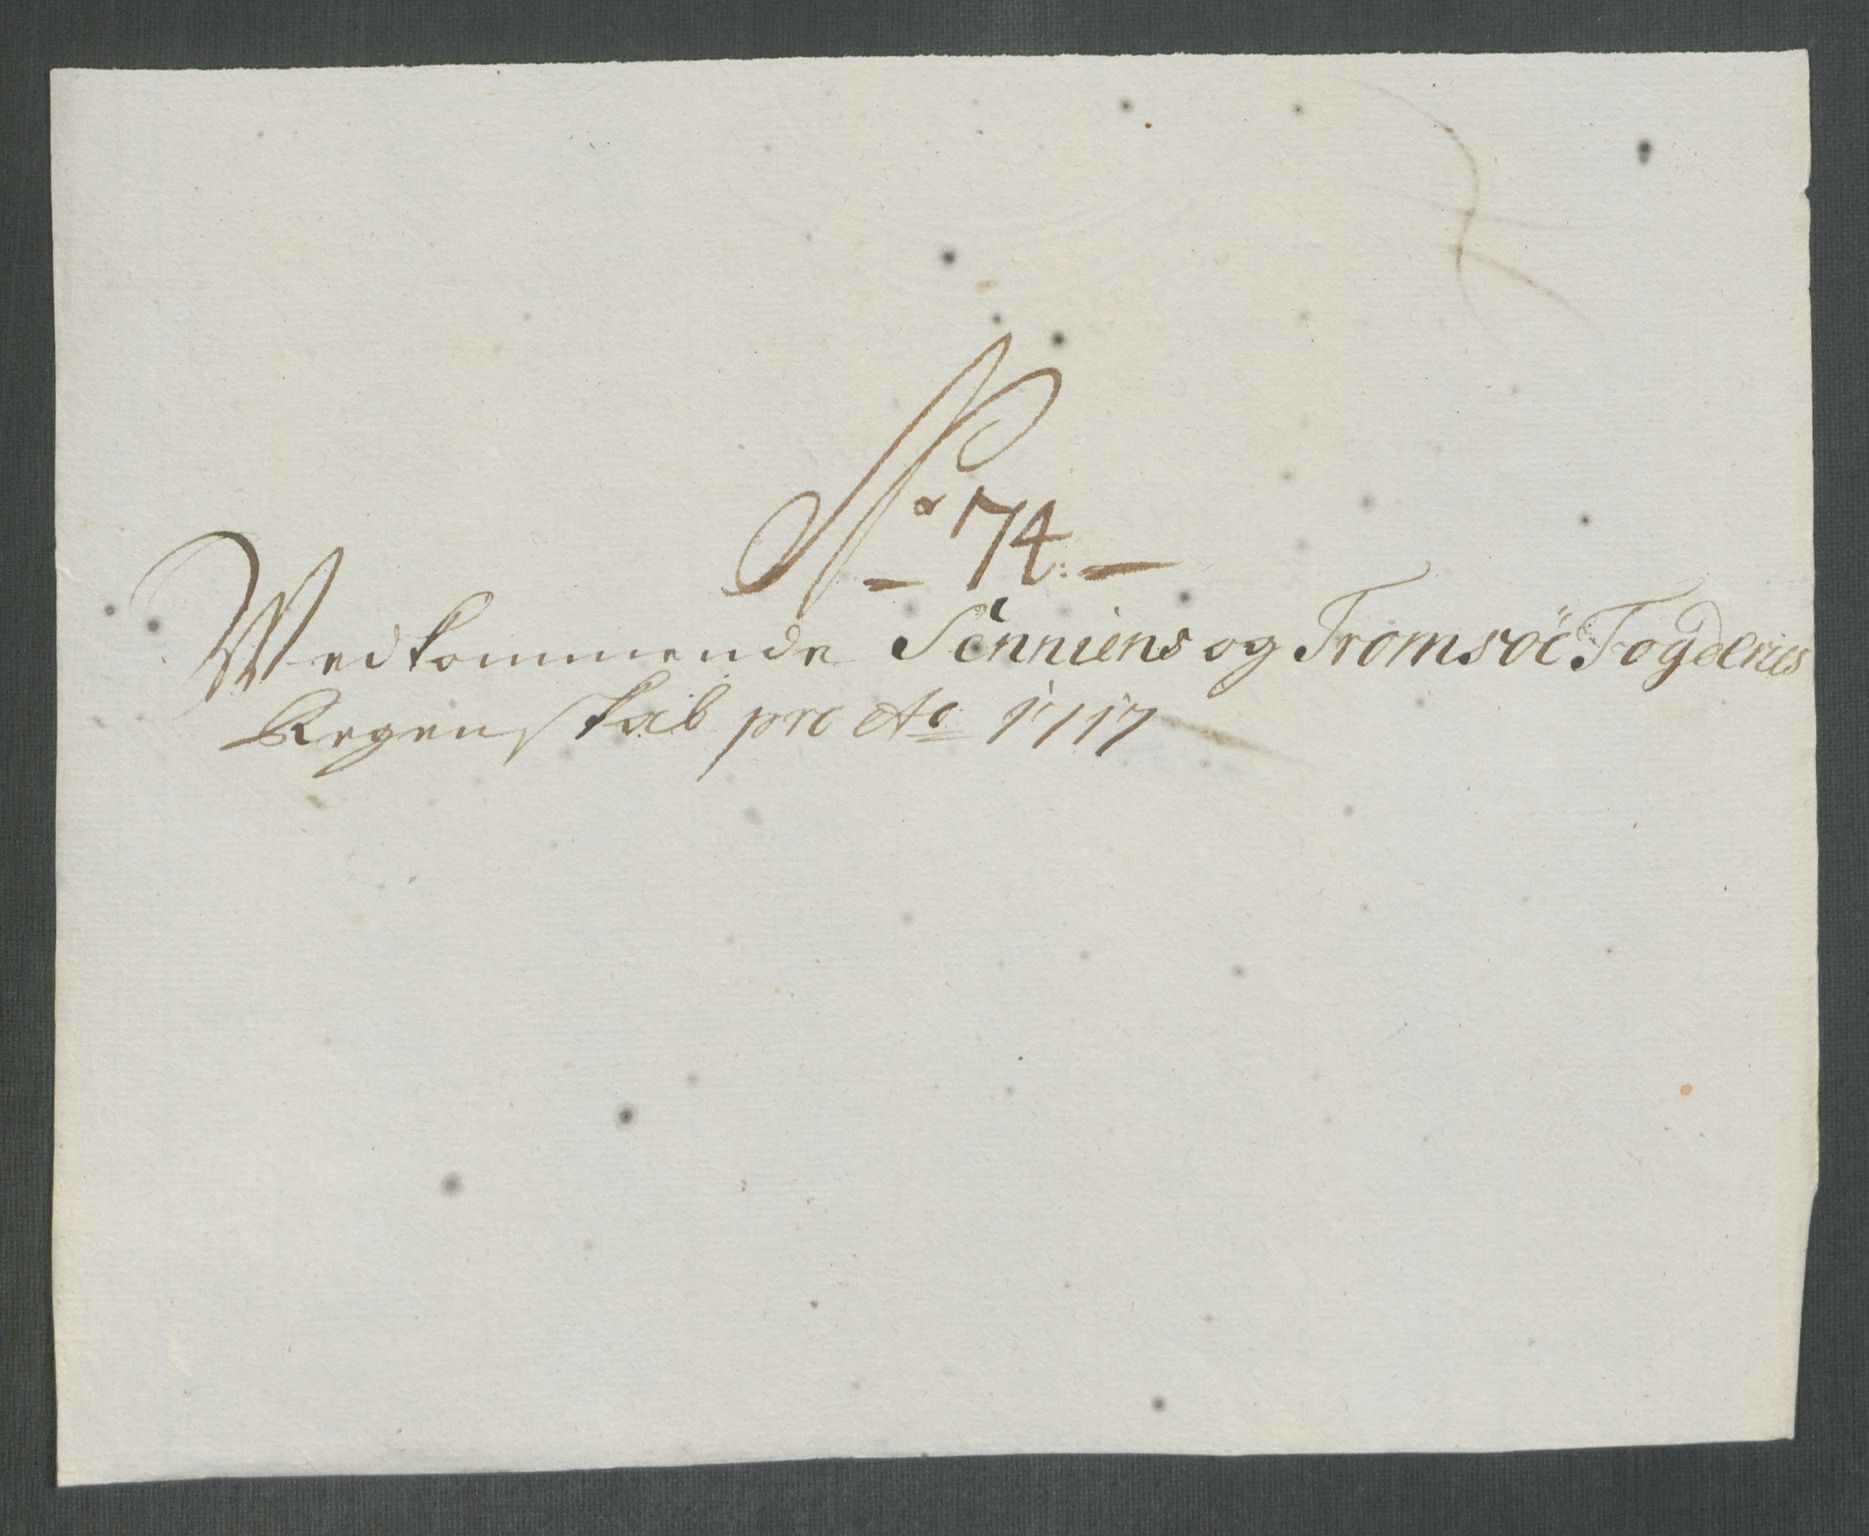 No 74.
Wedkommende Senniens og Tromsöe Fogderies
Regenskab pro Ao 1717